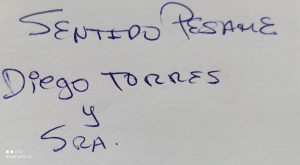 SENTIDO PESAME
Diego TORRES
y
SRA.